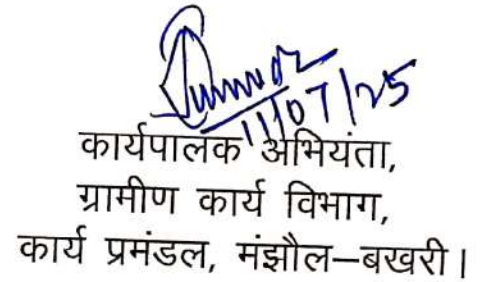 11/07/25
कार्यपालक अभियंता,
ग्रामीण कार्य विभाग,
कार्य प्रमंडल, मंझौल–बखरी।